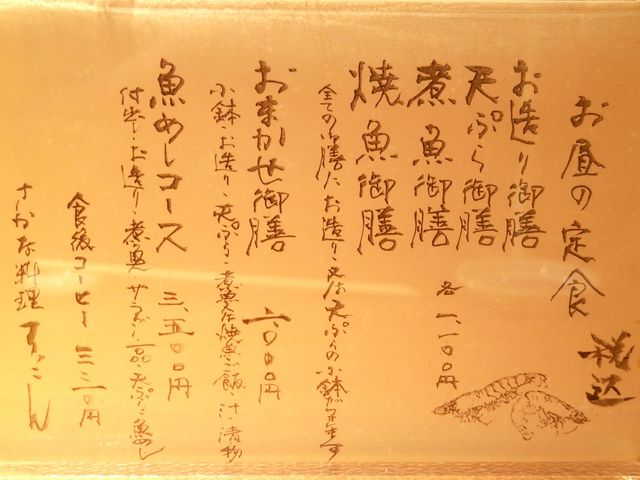 お昼の定食
税込
お造り御膳
天ぷら御膳
煮魚御膳
焼魚御膳
各一、一〇〇円
全ての御膳に、お造り又は天ぷらの小鉢がつきます
おまかせ御膳
小鉢・お造り・天ぷら・煮魚又は焼魚・ご飯・汁・漬物
魚めしコース 三、五〇〇円
付出し・お造り・煮魚・サラダ・一品・天ぷら・魚めし
食後コーヒー 三三〇円
さかな料理